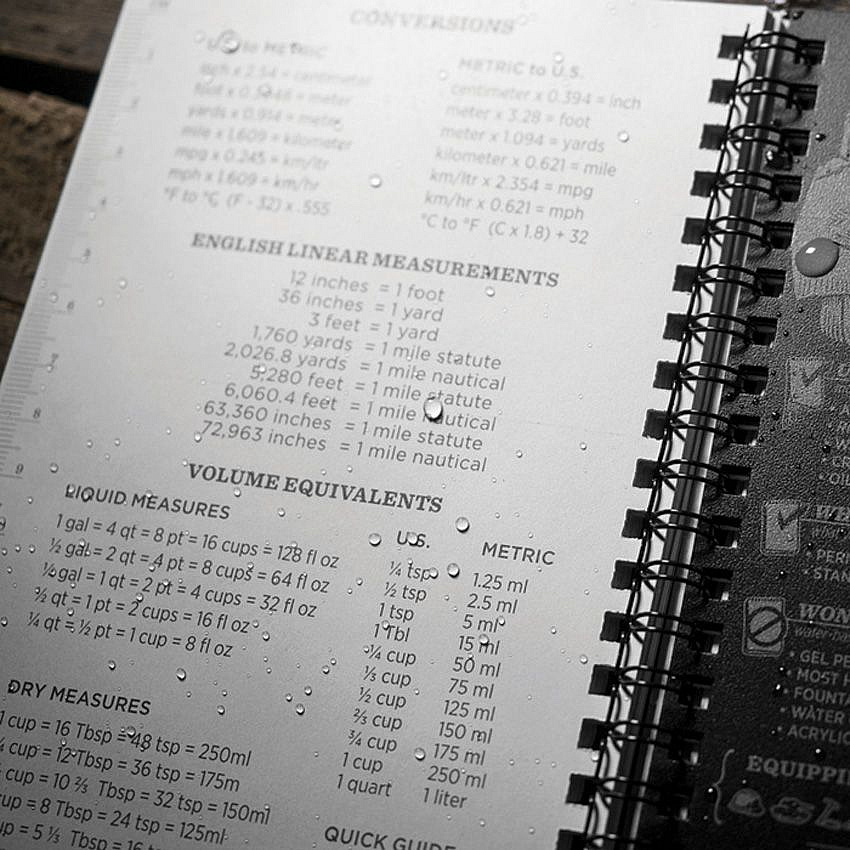 CONVERSIONS
U.S. to METRIC
inch x 2.54 = centimeter
foot x 0.3048 = meter
yards x 0.914 = meter
mile x 1.609 = kilometer
mpg x 0.245 = km/ltr
mph x 1.609 = km/hr
°F to °C (F - 32) x .555
METRIC to U.S.
centimeter x 0.394 = inch
meter x 3.28 = foot
meter x 1.094 = yards
kilometer x 0.621 = mile
km/ltr x 2.354 = mpg
km/hr x 0.621 = mph
°C to °F (C x 1.8) + 32
ENGLISH LINEAR MEASUREMENTS
12 inches = 1 foot
36 inches = 1 yard
3 feet = 1 yard
1,760 yards = 1 mile statute
2,026.8 yards = 1 mile nautical
5,280 feet = 1 mile statute
6,060.4 feet = 1 mile nautical
63,360 inches = 1 mile statute
72,963 inches = 1 mile nautical
VOLUME EQUIVALENTS
LIQUID MEASURES
1 gal = 4 qt = 8 pt = 16 cups = 128 fl oz
½ gal = 2 qt = 4 pt = 8 cups = 64 fl oz
¼ gal = 1 qt = 2 pt = 4 cups = 32 fl oz
½ qt = 1 pt = 2 cups = 16 fl oz
¼ qt = ½ pt = 1 cup = 8 fl oz
U.S. METRIC
¼ tsp 1.25 ml
½ tsp 2.5 ml
1 tsp 5 ml
1 Tbl 15 ml
¼ cup 50 ml
⅓ cup 75 ml
½ cup 125 ml
⅔ cup 150 ml
¾ cup 175 ml
1 cup 250 ml
1 quart 1 liter
DRY MEASURES
1 cup = 16 Tbsp = 48 tsp = 250ml
cup = 12 Tbsp = 36 tsp = 175m
cup = 10 ⅔ Tbsp = 32 tsp = 150ml
cup = 8 Tbsp = 24 tsp = 125ml
= 5 ⅓ Tbsp = 16
QUICK GUIDE
WON
water-ba
• GEL PE
• MOST H
• FOUNTA
• WATER
• ACRYLIC
EQUIPPI